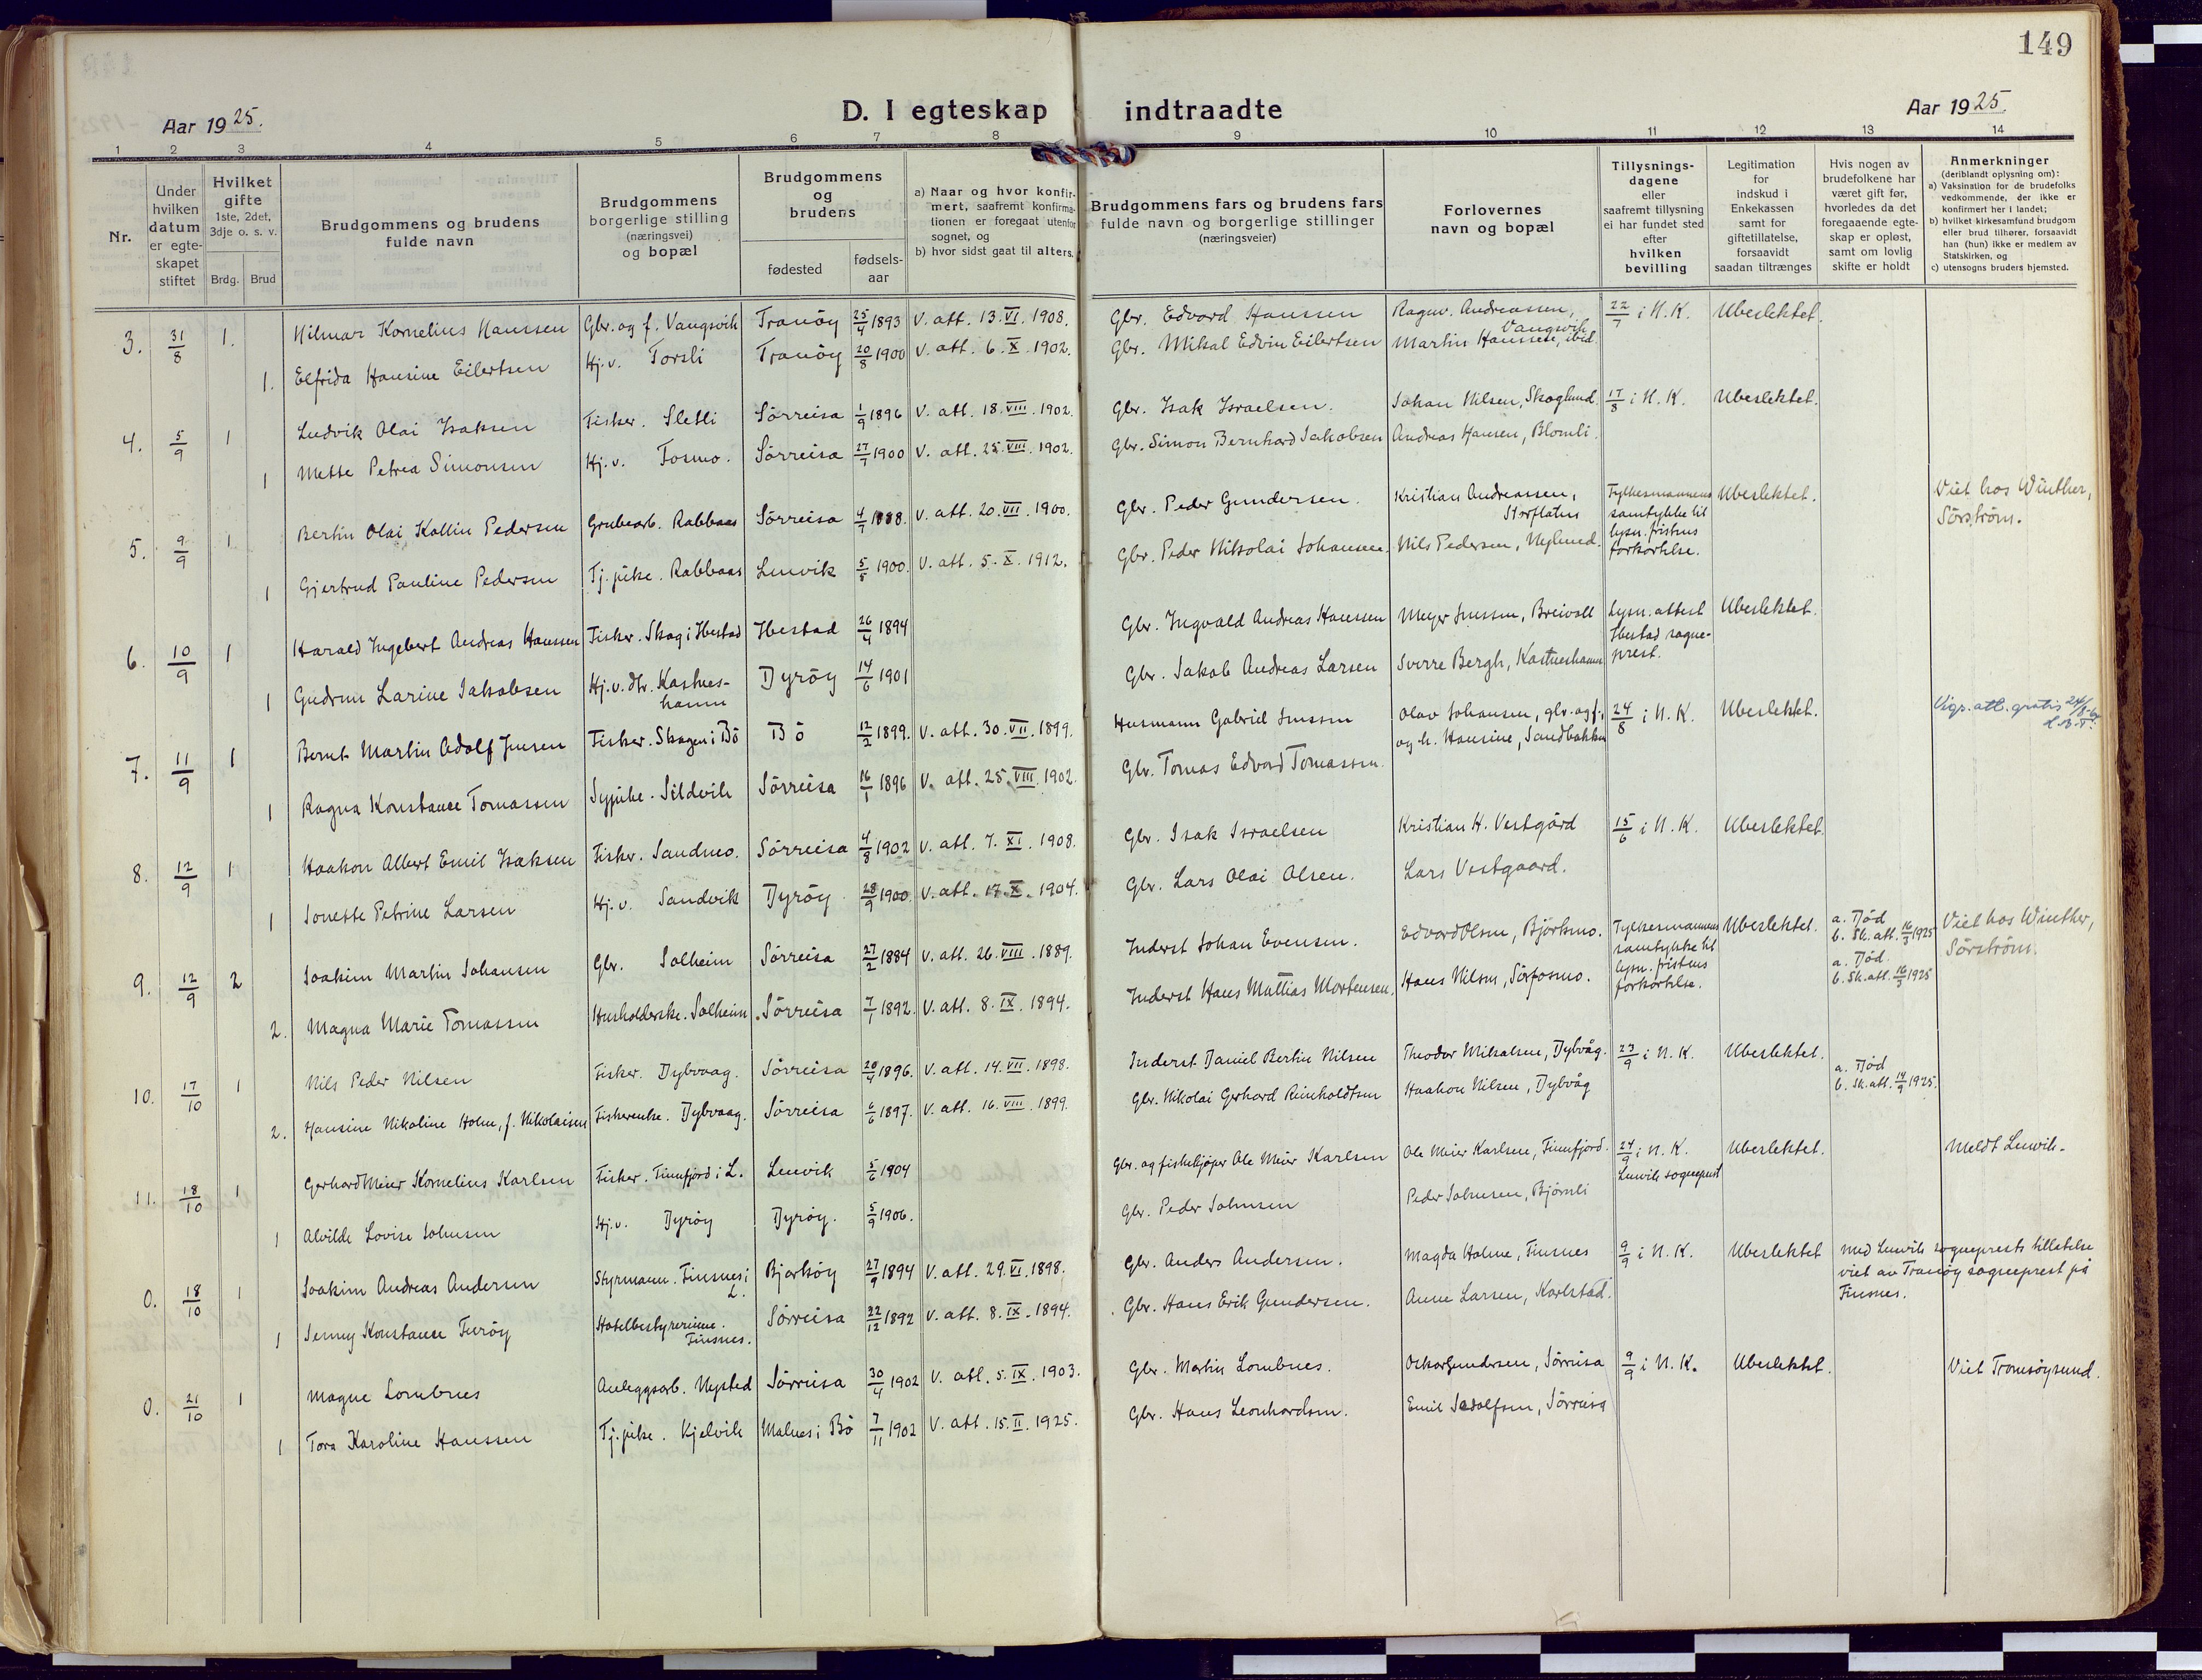 149
Aar 1925.
D. I egteskap indtraadte
Aar 1925.
1 2 3 4 5 6 7 8 9 10 11 12 13 14
Nr.
Under hvilken datum er egteskapet stiftet
Hvilket gifte 1ste, 2det, 3dje o. s. v.
Brdg. Brud
Brudgommens og brudens fulde navn
Brudgommens borgerlige stilling (næringsvei) og bopæl
Brudgommens og brudens
fødested
fødselsaar
a) Naar og hvor konfirmert, saafremt konfirmationen er foregaat utenfor sognet, og
b) hvor sidst gaat til alters.
Brudgommens fars og brudens fars fulde navn og borgerlige stillinger (næringsveier)
Forlovernes navn og bopæl
Tillysningsdagene eller saafremt tillysning ei har fundet sted efter hvilken bevilling
Legitimation for indskud i Enkekassen samt for giftetillatelse, forsaavidt saadan tiltrænges
Hvis nogen av brudefolkene har været gift før, hvorledes da det foregaaende egteskap er opløst, samt om lovlig skifte er holdt
Anmerkninger (deriblandt oplysning om):
a) Vaksination for de brudefolks vedkommende, der ikke er konfirmert her i landet;
b) hvilket kirkesamfund brudgom eller brud tilhører, forsaavidt han (hun) ikke er medlem av Statskirken, og
c) utensogns bruders hjemsted.
3. 31/8 1. Hilmar Kornelius Hanssen Gbr. og f. Vangsvik Tranöy 25/9 1893 V. att. 13.VI.1908. Gbr. Edvard Hanssen Ragnv. Andreassen, Vangsvik 22/7 i N.K. Ubeslektet.
1. Elfrida Hansine Eilertsen Hj.v. Torsli Tranöy 20/8 1900 V. att. 6.X.1902. Gbr. Mikal Edvin Eilertsen Martin Hanssen, ibid.
4. 5/9 1 Ludvik Olai Isaksen Fisker. Sletli Sörreisa 1/9 1896 V. att. 18.VIII.1902. Gbr. Isak Israelsen. Johan Nilsen, Skoglund. 17/8 i N.K. Ubeslektet.
1 Mette Petrea Simonsen Hj.v. Fosmo. Sörreisa 27/7 1900 V. att. 25.VIII.1902. Gbr. Simon Bernhard Jakobsen Andreas Hansen, Blomli.
5. 9/9 1 Bertin Olai Kollin Pedersen Grubearb. Rabbaas Sörreisa 4/7 1888. V. att. 20.VII.1900. Gbr. Peder Gundersen. Kristian Andreassen, Storflaten Fylkesmannens samtykke til lysn. fristens forkortelse. Ubeslektet. Viet hos Winther, Sörström.
1 Gjertrud Pauline Pedersen Tj.pike. Rabbaas Lenvik 5/5 1900. V. att. 5.X.1912. Gbr. Peder Nikolai Johansen. Nils Pedersen, Nylund.
6. 10/9 1 Harald Ingebert Andreas Hanssen Fisker. Skog i Ibestad Ibestad 26/4 1894 Gbr. Ingvald Andreas Hanssen Meyer Jenssen, Breivoll Lysn. attest Ibestad sogneprest. Ubeslektet.
1 Gudrun Larine Jakobsen Hj.v. dtr. Kastneshamn Dyröy 14/6 1901 Gbr. Jakob Andreas Larsen Sverre Bergh, Kastneshamn
7. 11/9 1 Bernt Martin Adolf Jensen Fisker. Skogen i Bö Bö 12/2 1899. V. att. 30.VII.1899. Husmann Gabriel Jenssen Olav Johansen, gbr. og f., og h. Hansine, Sandbakken 24/8 i N.K. Ubeslektet. Vigs. att. gratis
1 Ragna Konstance Tomassen Sypike. Sildvik Sörreisa 16/1 1896 V. att. 25.VIII.1902. Gbr. Tomas Edvard Tomassen.
8. 12/9 1 Haakon Albert Emil Isaksen Fisker. Sandmo. Sörreisa 4/8 1902 V. att. 7.XI.1908. Gbr. Isak Israelsen Kristian H. Vestgård 15/6 i N.K. Ubeslektet.
1 Jonette Petrine Larsen Hj.v. Sandvik Dyröy 28/9 1900. V. att. 17.X.1904. Gbr. Lars Olai Olsen. Lars Vestgaard.
9. 12/9 2 Joakim Martin Johansen Gbr. Solheim Sörreisa 27/2 1884 V. att. 26.VIII.1889. Inderst Johan Evensen. Edvard Olsen, Björkmo. Fylkesmannens samtykke til lysn. fristens forkortelse. Ubeslektet. a. Död b. Sk. att. 16/3 1925 Viet hos Winther, Sörström.
2. Magna Marie Tomassen Husholderske. Solheim. Sörreisa 7/1 1892. V. att. 8.IX.1894. Inderst Hans Mattias Mortensen. Hans Nilsen, Sörfosmo. a. Död. b. Sk. att. 16/3 1925
10. 17/10 1 Nils Peder Nilsen Fisker. Dybvaag. Sörreisa 20/4 1896. V. att. 14.VII.1898. Inderst Daniel Bertin Nilsen Theodor Mikalsen, Dybvåg. 23/9 i N.K. Ubeslektet. a. Död b. Sk. att. 14/9 1925.
2. Hansine Nikoline Holm, f. Nikolaisen Fiskerenke. Dybvaag. Sörreisa 6/6 1897. V. att. 16.VIII.1899. Gbr. Nikolai Gerhard Reinholdtsen Haakon Nilsen, Dybvåg
11. 18/10 1 Gerhard Meier Kornelius Karlsen Fisker. Finnfjord i L. Lenvik 5/6 1904 Gbr. og fiskekjöper Ole Meier Karlsen Ole Meier Karlsen, Finnfjord. 24/9 i N.K. Lenvik sogneprest Ubeslektet. Meldt Lenvik.
1 Alvilde Lovise Johnsen Hj.v. Dyröy Dyröy. 5/9 1906. Gbr. Peder Johnsen Peder Johnsen, Björnli
0. 18/10 1 Joakim Andreas Andersen Styrmann. Finsnes i L. Bjarköy 27/9 1894 V. att. 29.VI.1898. Gbr. Anders Andersen. Magda Holme, Finsnes 9/9 i N.K. Ubeslektet Med Lenvik sogneprests tillatelse viet av Tranöy sogneprest på Finsnes.
1 Jenny Konstanse Furöy Hotelbestyrerinne. Finsnes. Sörreisa 22/12 1892 V. att. 8.IX.1894. Gbr. Hans Erik Gundersen. Anne Larsen, Karlstad.
0. 21/10 1 Magne Lombnes Anleggsarb. Nysted Sörreisa 30/4 1902 V. att. 5.IX.1903. Gbr. Martin Lombnes. Oskar Gundersen, Sörreisa 9/9 i N.K. Ubeslektet. Viet Tromsöysund.
1 Tora Karoline Hanssen Tj.pike. Kjelvik Malnes i Bö 7/11 1902 V. att. 15.II.1925. Gbr. Hans Leonhardsen. Emil Sadolfsen, Sörreisa